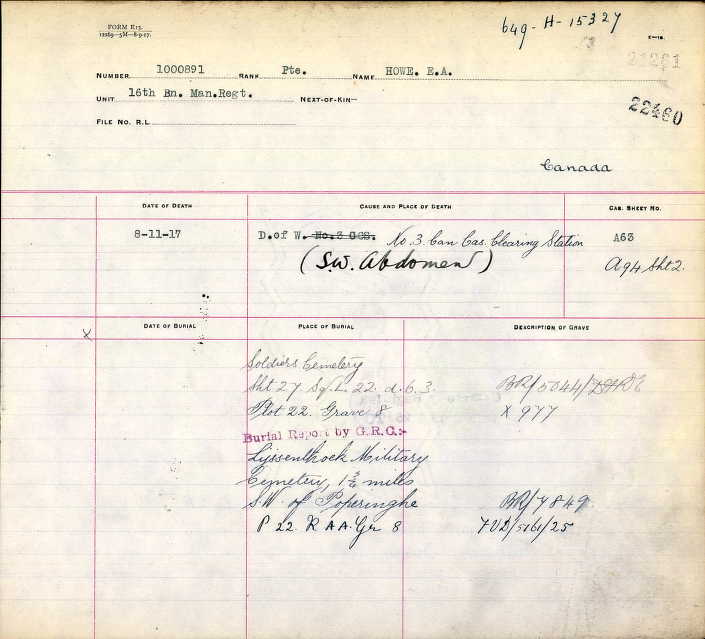 FORM K15.
12269—5M—8-9-17.
649-H-15327
21261
NUMBER 1000891 RANK Pte. NAME HOWE. E.A.
UNIT 16th Bn. Man.Regt. NEXT-OF-KIN—
22460
FILE NO. R.L
Canada
DATE OF DEATH CAUSE AND PLACE OF DEATH CAS. SHEET NO.
8-11-17 D.of W. No.3 CCS. No 3. Can Cas. Clearing Station A63
(S.W. Abdomen) A94 Sht 2.
X DATE OF BURIAL PLACE OF BURIAL DESCRIPTION OF GRAVE
Soldiers Cemetery
Sht 27 Sq. L. 22. d. 6. 3. BR/5044/
Plot 22. Grave 8 X 977
Burial Report by G.R.C:-
Lijssenthoek Military
Cemetery, 1 3/4 miles
S.W. of Poperinghe BR/7849.
P 22. R AA. Gr 8 7VD/5161/25